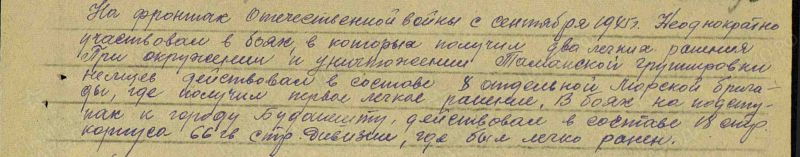 На фронтах Отечественной войны с сентября 1941г. Неоднократно
участвовал в боях, в которых получил два легких ранения
При окружении и уничтожении Таманской группировки
немцев действовал в составе 8 отдельной Морской брига-
ды, где получил первое легкое ранение. В боях на подсту-
пах к городу Будапешту, действовал в составе 18 стр.
корпуса 66 гв стр. Дивизии, где был легко ранен.